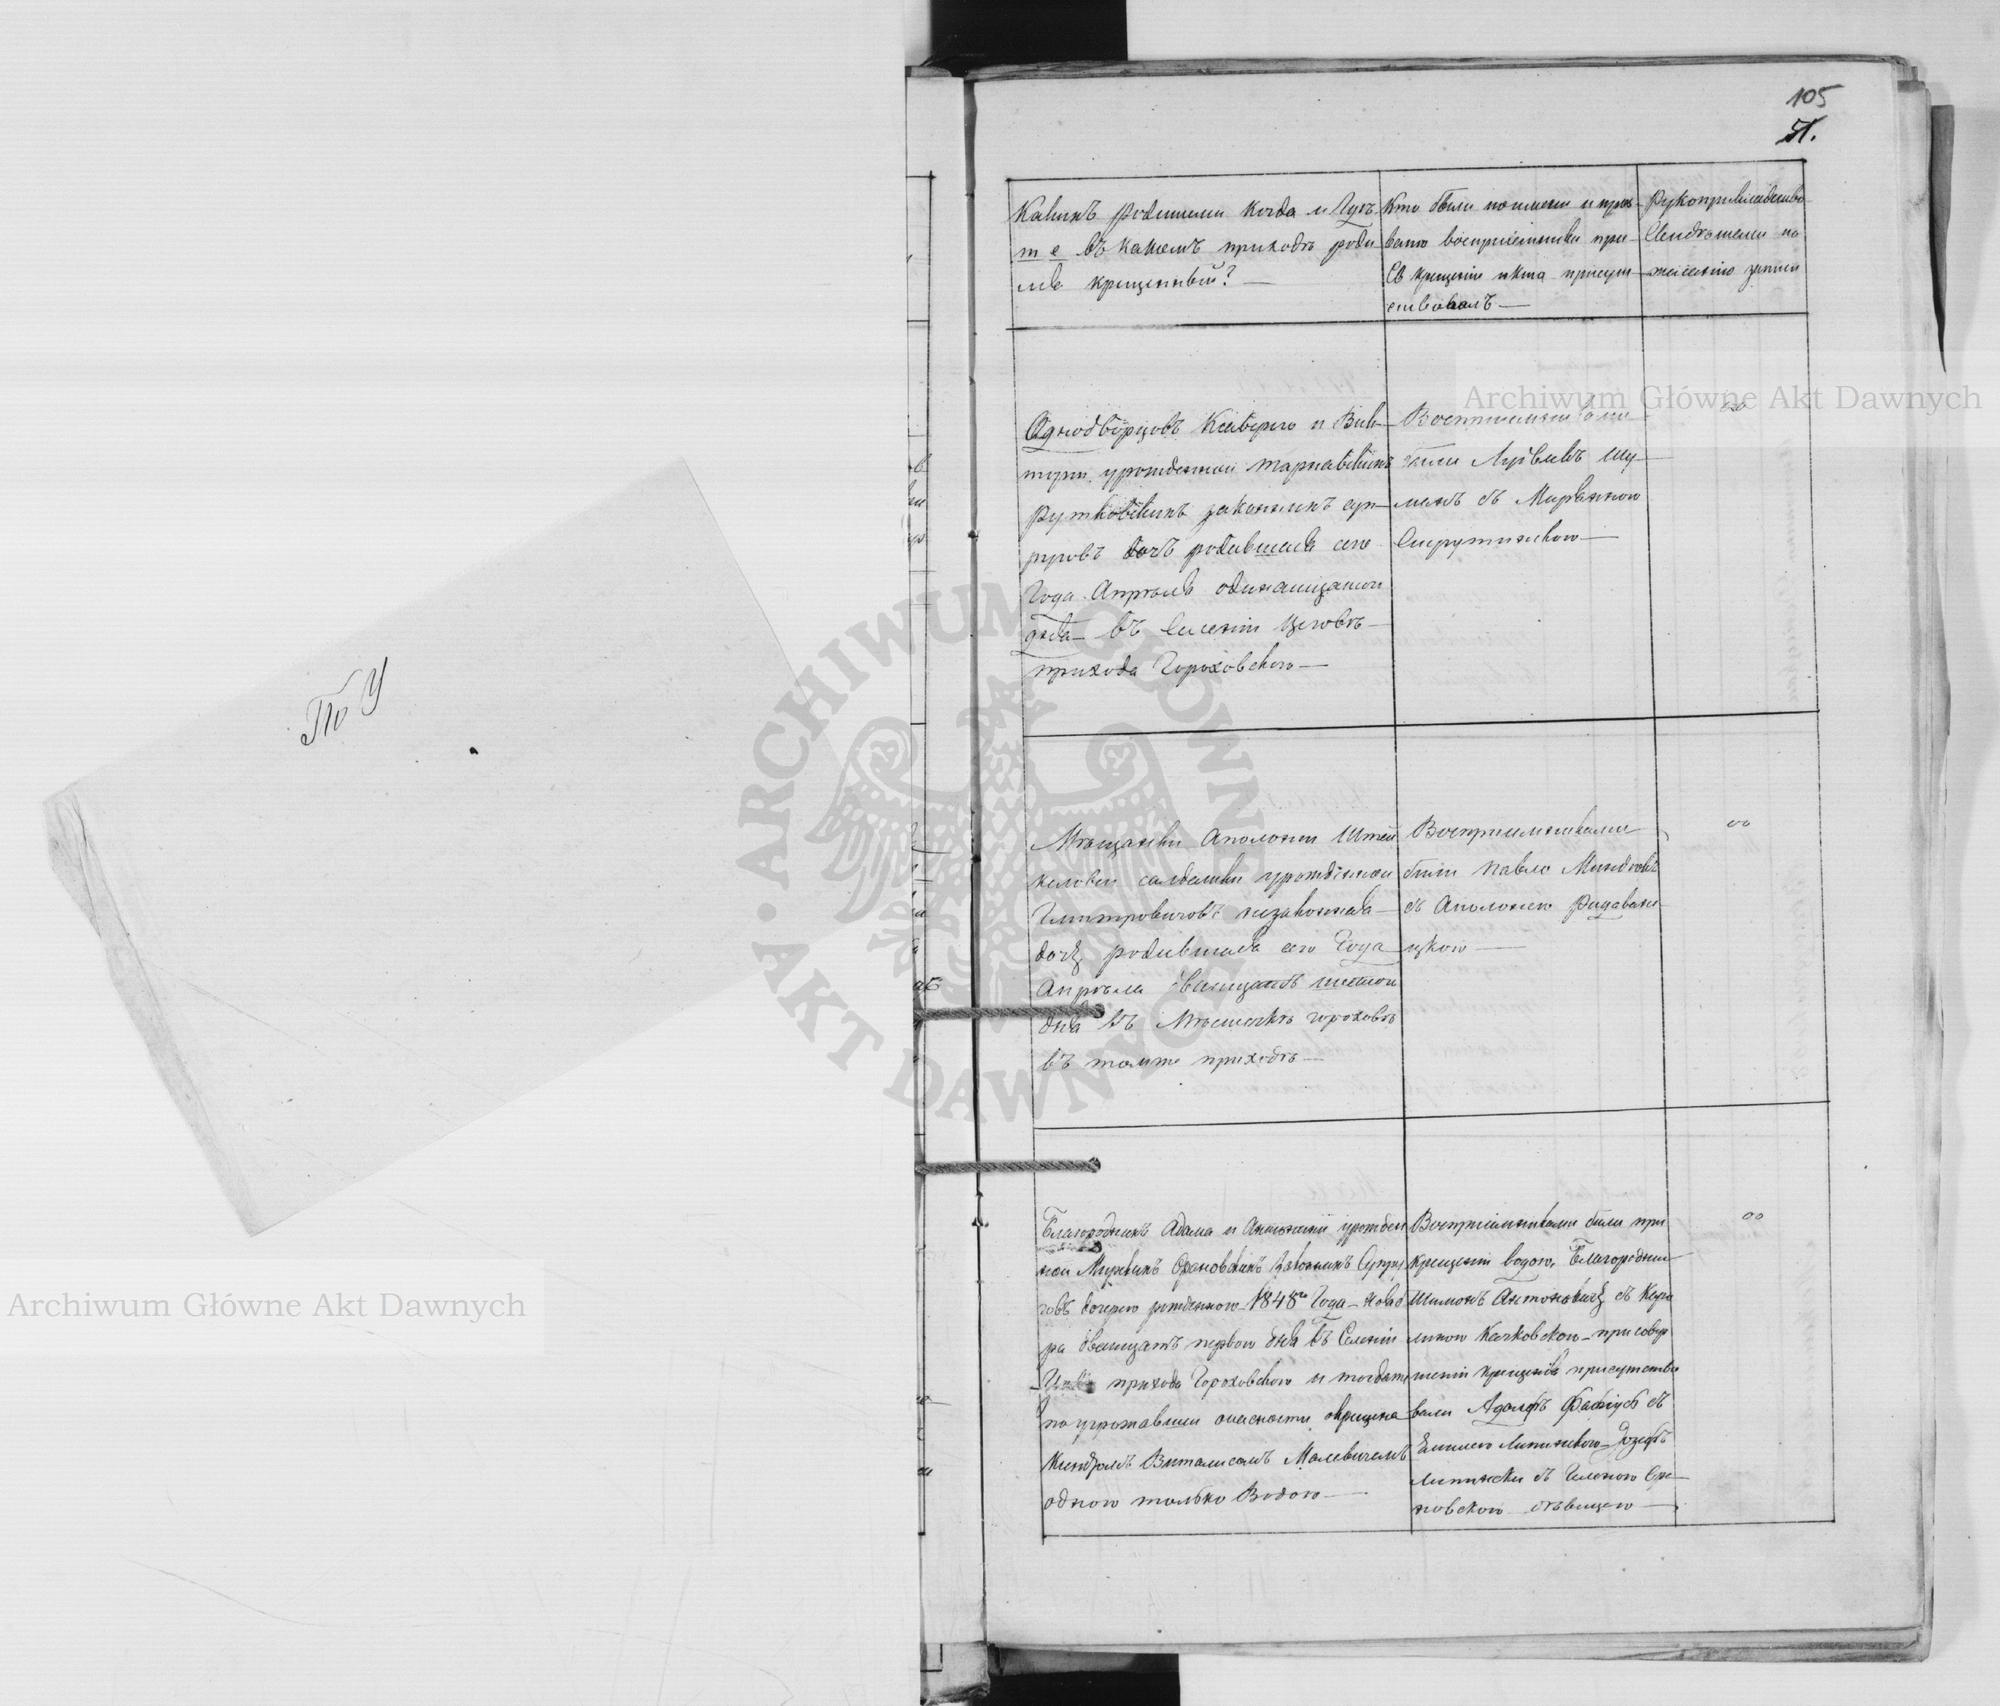 105
51.
Какихъ родителей когда и Гдѣ
т е въ какомъ приходѣ роди
лся крещенный? —
Кто были поимени и проз-
ванію воспріемники при
Св крещеніи и кто присут
ствовалъ —
Рукоприкладство
Свидѣтелей по
желанію записи
Однодворцовъ Ксаверго и Вик-
торіи урожденной Тарнавскихъ
Рутковскихъ законныхъ суп-
руговъ дочъ родившаяся сего
Года Апрѣля одинатцатого
дня — въ Селеніи Цеговѣ —
прихода Гороховского —
Воспріемниками
были
съ Маріанною
оо
Мѣщанки Аполоніи
солдатки урожденной
незаконная —
дочъ родившаяся сего Года
Апрѣля дваццать шестого
дня въ Мѣстечкѣ Гороховѣ
въ томже приходѣ —
Воспріемниками
были Павло
съ Аполоніею
оо
Благородныхъ Адама и Антонины урожден
ной законныхъ Супру
говъ дочерю рожденную 1848го Года — Нояб
ра дваццать первого дня въ Селеніи
прихода Гороховского и тогдаже
по угрожавшей опасности окрещена
Ксендзомъ Виталисомъ Малевичемъ
одною только Водою —
Воспріемниками были при
крещеніи водою, Благородные
Шимонъ Антоновичъ съ Каро
линою Качковскою — при совер
шеніи крещенія присутство
вали Адольфъ съ
Емилею Липинскою — Іозефъ
Липински съ Геленою Ора-
новскою дѣвицею —
оо
Archiwum Główne Akt Dawnych
Archiwum Główne Akt Dawnych
ARCHIWUM GŁÓWNE AKT DAWNYCH